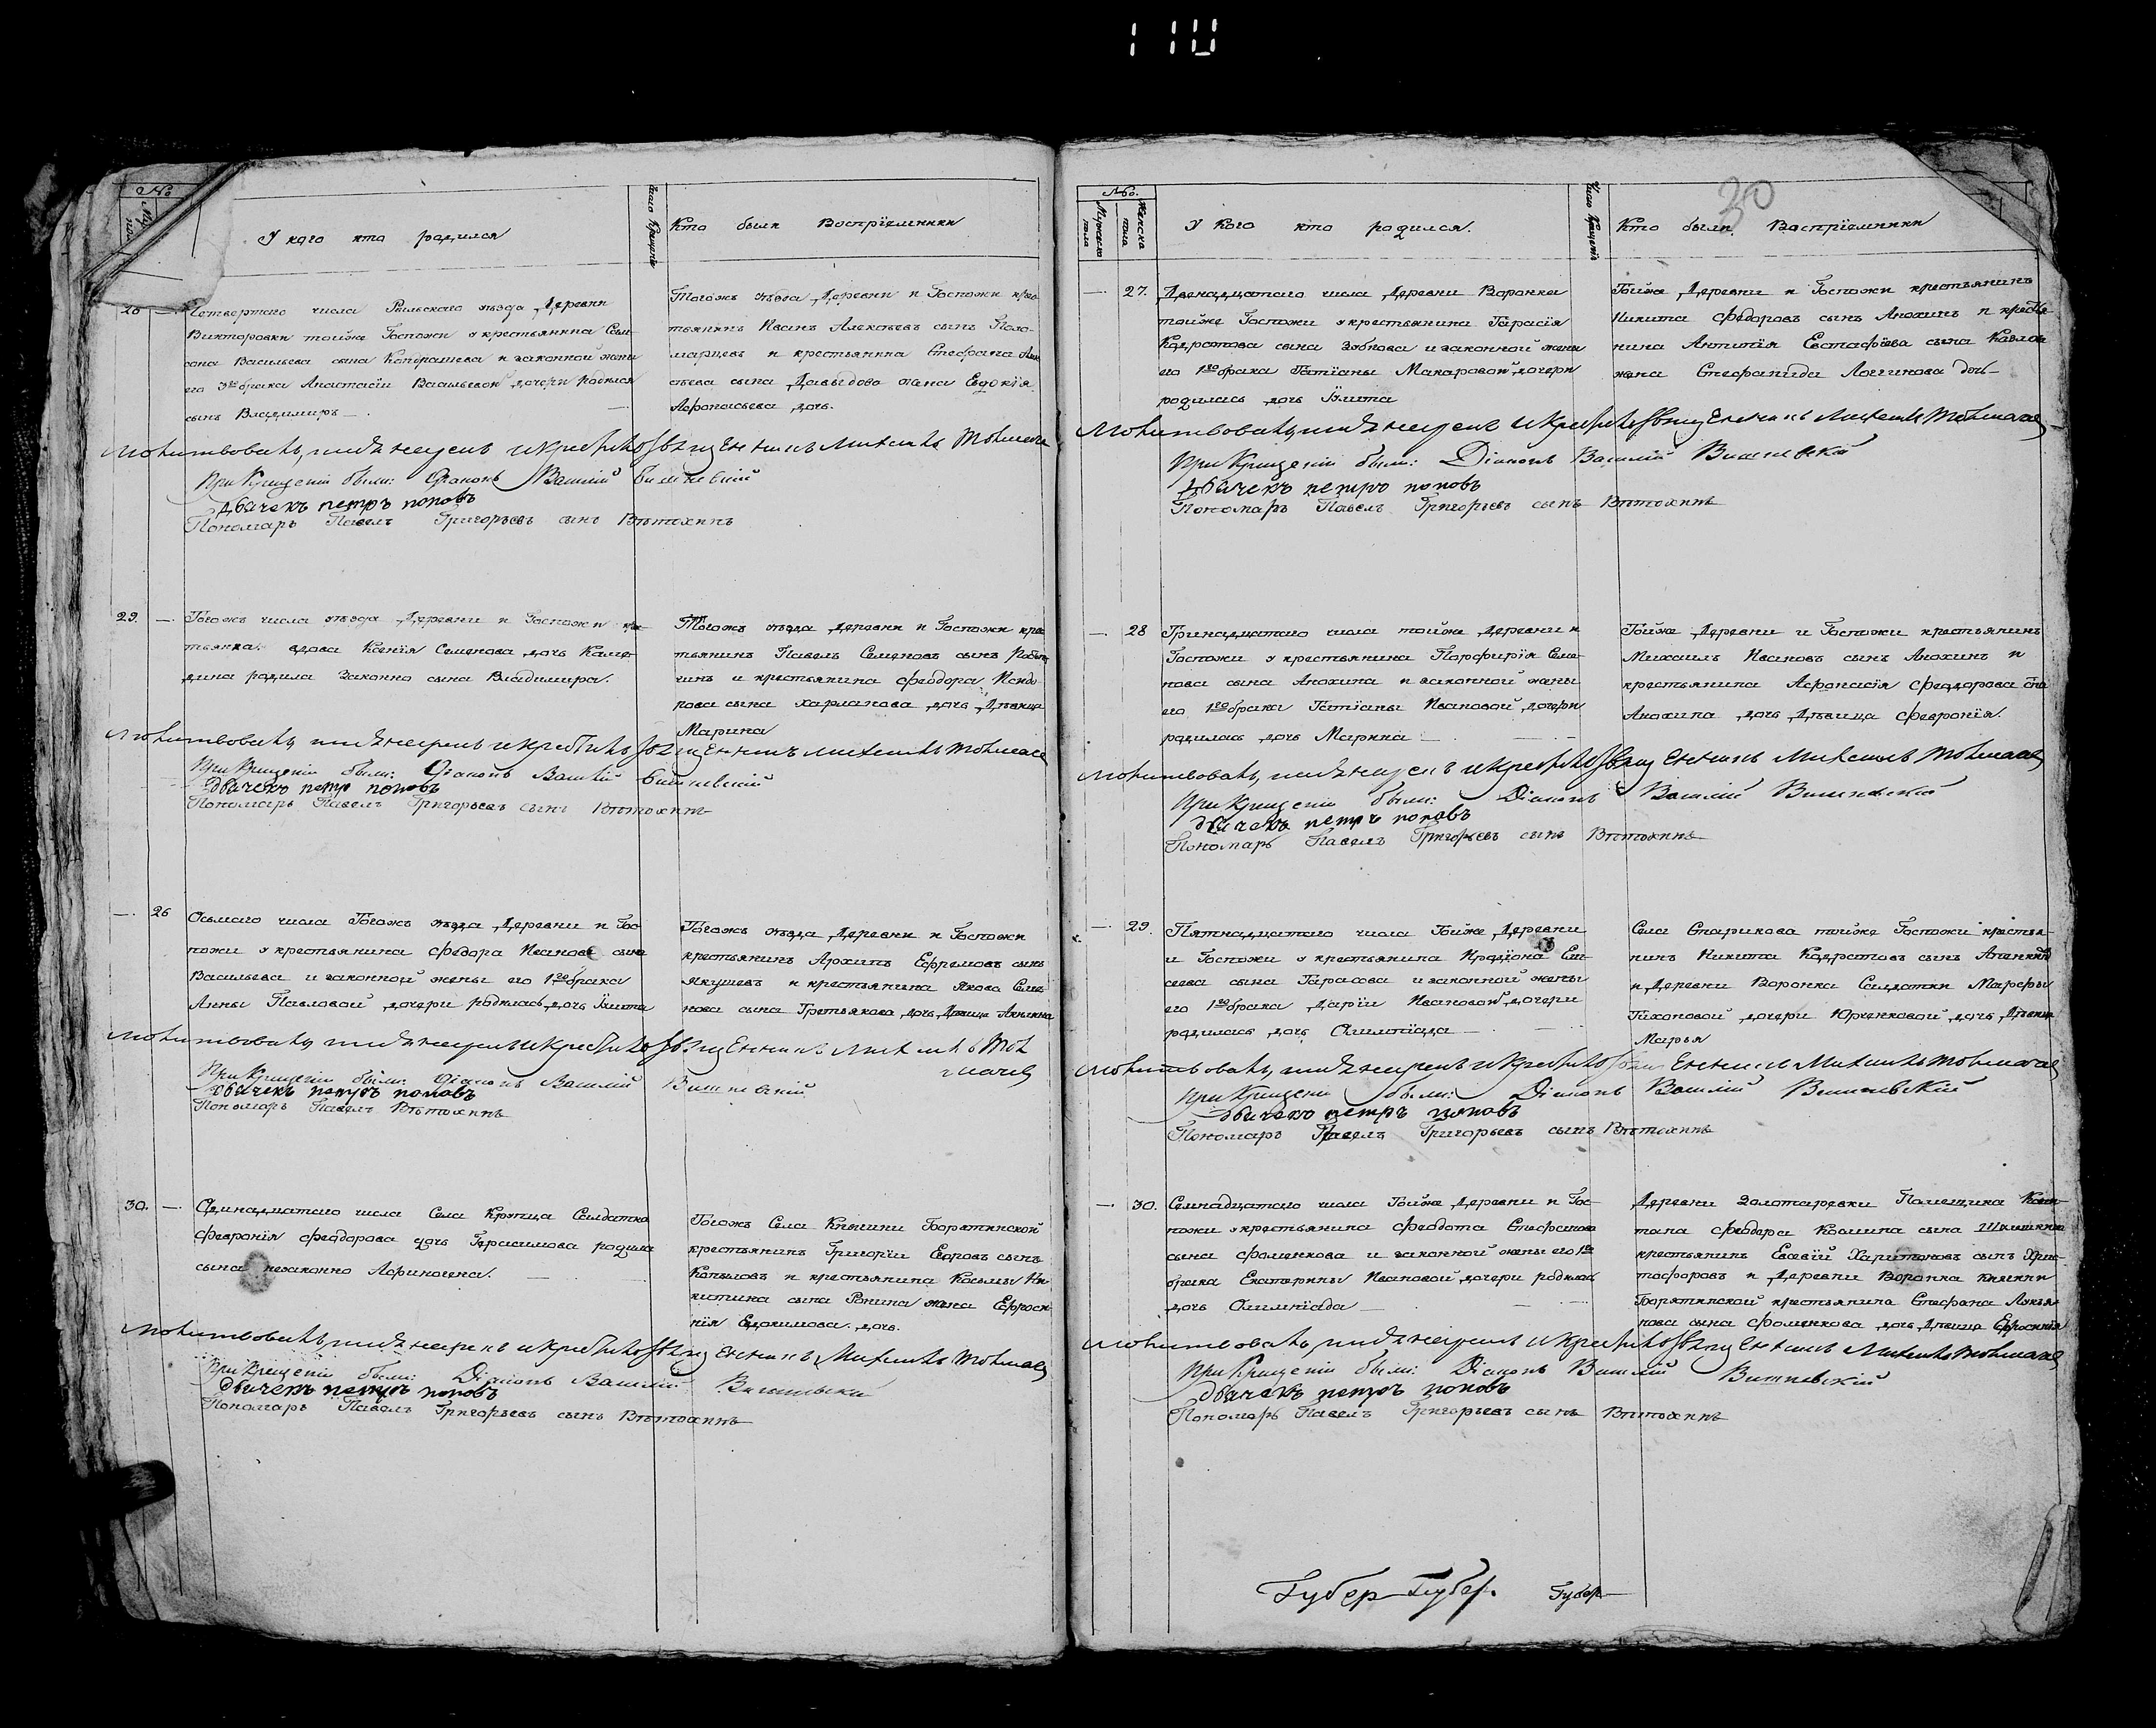 110
30
№
У кого кто родился
Число Крещенія
Кто были Воспріемники
28 — Четвертаго числа Рыльскаго уезда Деревни
Викторовки тойже Госпожи у крестьянина Сем-
Васильева сына Кондрашева и законной жены
его 3го брака Анастасіи Васильевой дочери родился
сынъ Владимиръ —
Тогожъ уезда Деревни и Госпожи крес-
тьянинъ Иванъ Алексѣевъ сынъ
и крестьянина Стефана
сына Давыдова жена Евдокія
Афонасьева дочь.
Молитвовалъ, имя нарекъ и крестилъ священникъ Михаилъ Толмачев
При Крещеніи были: Діаконъ Василій Вишневскій
Дьячекъ петръ поповъ
Пономарь Павелъ Григорьевъ сынъ Вѣтохинъ
29. — Тогожъ числа уезда Деревни и Госпожи крес-
тьянка вдова Ксенія Семенова дочь
родила Законно сына Владимира.
Тогожъ уезда Деревни и Госпожи крес-
тьянинъ Павелъ Семеновъ сынъ
и крестьянина Феодора
сына Харланова дочь Дѣвица
Марина
Молитвовалъ имя нарекъ и крестилъ священникъ михаилъ толмачев
При Крещеніи были: Діаконъ Василій Вишневскій
Дьячекъ петр поповъ
Пономарь Павелъ Григорьевъ сынъ Вѣтохинъ
— 26 Осьмаго числа Тогожъ уезда Деревни и Гос-
пожи у крестьянина Федора Иванова сына
Васильева и законной жены его 1го брака
Анны Павловой дочери родилась дочь Улита
Тогожъ уезда Деревни и Госпожи
крестьянинъ Архипъ Ефремовъ сынъ
Якушевъ и крестьянина Якова Семе-
нова сына Третьякова дочь Дѣвица Акилина
Молитвовалъ имя нарекъ и крестилъ священникъ Михаилъ Тол
мачев
При Крещеніи были: Діаконъ Василій Вишневскій
Дьячекъ петръ поповъ
Пономарь Павелъ Вѣтохинъ
30. — Одинадцатаго числа Села Крупца Салдатка
Февронія Феодорова дочь Герасимова родила
сына незаконно Афиногена.
Тогожъ Села Княгини Борятинской
крестьянинъ Григоріи Егоровъ сынъ
Копыловъ и крестьянина Косьмы Ни-
китина сына Ронина жена Ефроси-
нія Евдокимова дочь.
Молитвовалъ, имя нарекъ и крестилъ священникъ, Михаилъ толмачев
При Крещеніи были: Діаконъ Василій Вишневскій
Дьячекъ петръ поповъ
Пономарь Павелъ Григорьевъ сынъ Вѣтохинъ
№
Мужеска пола
Женска пола
У Кого кто родился.
Число Крещенія
Кто были Воспріемники
— 27. Двенадцатаго числа Деревни Воронка
тойже Госпожи у крестьянина Тарасія
Кодратова сына Зубкова и законной жены
его 1го брака Татіаны Макаровой дочери
родилась дочь Улита
Тойже Деревни и Госпожи крестьянинъ
Никита Федоровъ сынъ Анохинъ и крестья-
нина Антипія Евстафіева сына
жена Стефанида Логгинова дочь
Молитвовалъ, имя нарекъ и крестилъ священникъ Михаилъ Толмачев
При Крещеніи были: Діаконъ Василій Вишневскій
Дьячекъ петръ поповъ
Пономарь Павелъ Григорьевъ сынъ Вѣтохинъ
— 28 Тринадцатаго числа тойже Деревни и
Госпожи у крестьянина Порфирія Семе-
нова сына Анохина и законной жены
его 1го брака Татіаны Ивановой дочери
родилась дочь Марина —
Тойже Деревни и Госпожи крестьянинъ
Михаилъ Ивановъ сынъ Анохинъ и
крестьянина Афонасія Феодорова сына
Анохина дочь Дѣвица Февронія.
Молитвовалъ, имя нарекъ и крестилъ священникъ Михаилъ Толмачев
При Крещеніи были: Діаконъ Василій Вишневскій
Дьячекъ петръ поповъ
Пономарь Павелъ Григорьевъ сынъ Вѣтохинъ
— 29. Пятнадцатаго числа Тойже Деревни
и Госпожи у крестьянина Иродіона Ели-
сеева сына Тарасова и законной жены
его 1го брака Даріи Ивановой дочери
родилась дочь Олимпіада —
Села Старикова тойже Госпожи крестья-
нинъ Никита Кодратовъ сынъ
и Деревни Воронка Салдатки Марфы
Тихоновой дочери Юрченковой дочь Дѣвица
Марья
Молитвовалъ, имя нарекъ и крестилъ священникъ Михаилъ толмачев
При Крещеніи были: Діаконъ Василій Вишневскій
Дьячекъ петръ поповъ
Пономарь Павелъ Григорьевъ сынъ Вѣтохинъ
— 30. Семнадцатаго числа Тойже Деревни и Гос-
пожи у крестьянина Феодота Стефанова
сына Фоменкова и законной жены его 1го
брака Екатерины Ивановой дочери родилась
дочь Олимпіада —
Деревни Золотаревки Помещика Капи-
тана Феодора Косьмина сына
крестьянинъ Евсевій Харитоновъ сынъ Хрис-
тофоровъ и Деревни Воронка Княгини
Борятинской крестьянина Стефана Лукья-
нова сына Фоменкова дочь Дѣвица Ефросинія
Молитвовалъ, имя нарекъ и крестилъ священникъ Михаилъ толмачев
При Крещеніи были: Діаконъ Василій Вишневскій
Дьячекъ петръ поповъ
Пономарь Павелъ Григорьевъ сынъ Вѣтохинъ
Губер Губер. Губер